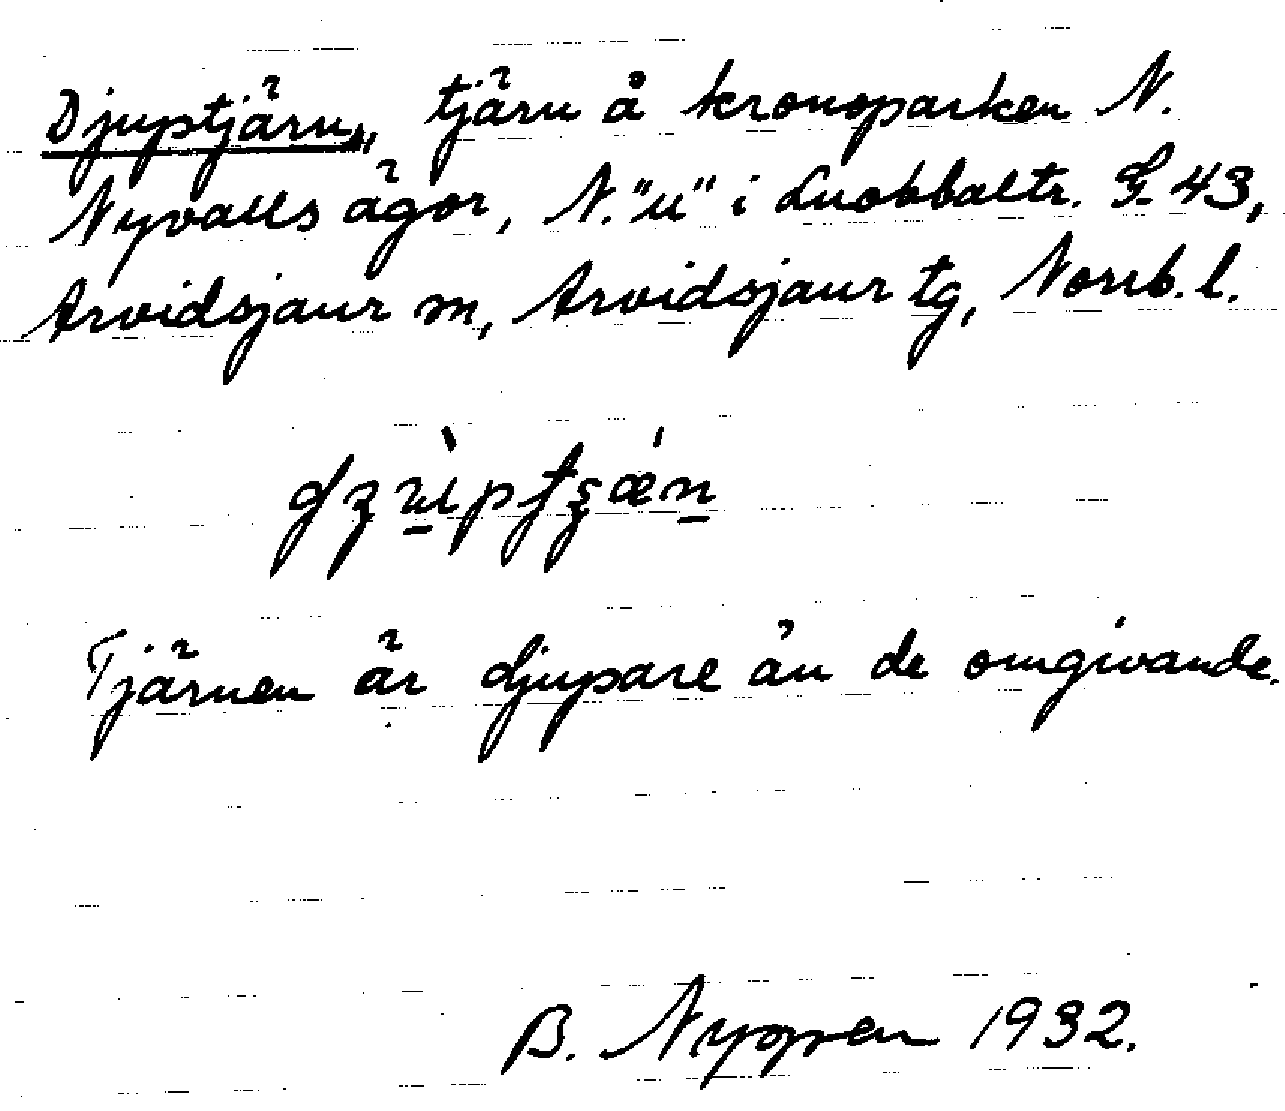 Djuptjärn, tjärn å kronoparken N.
Nyvalls ägor, N. "u" i Luobbaltr. G. 43,
Arvidsjaur sn, Arvidsjaur tg, Norrb. l.
Tjärnen är djupare än de omgivande.
B. Nygren 1932.